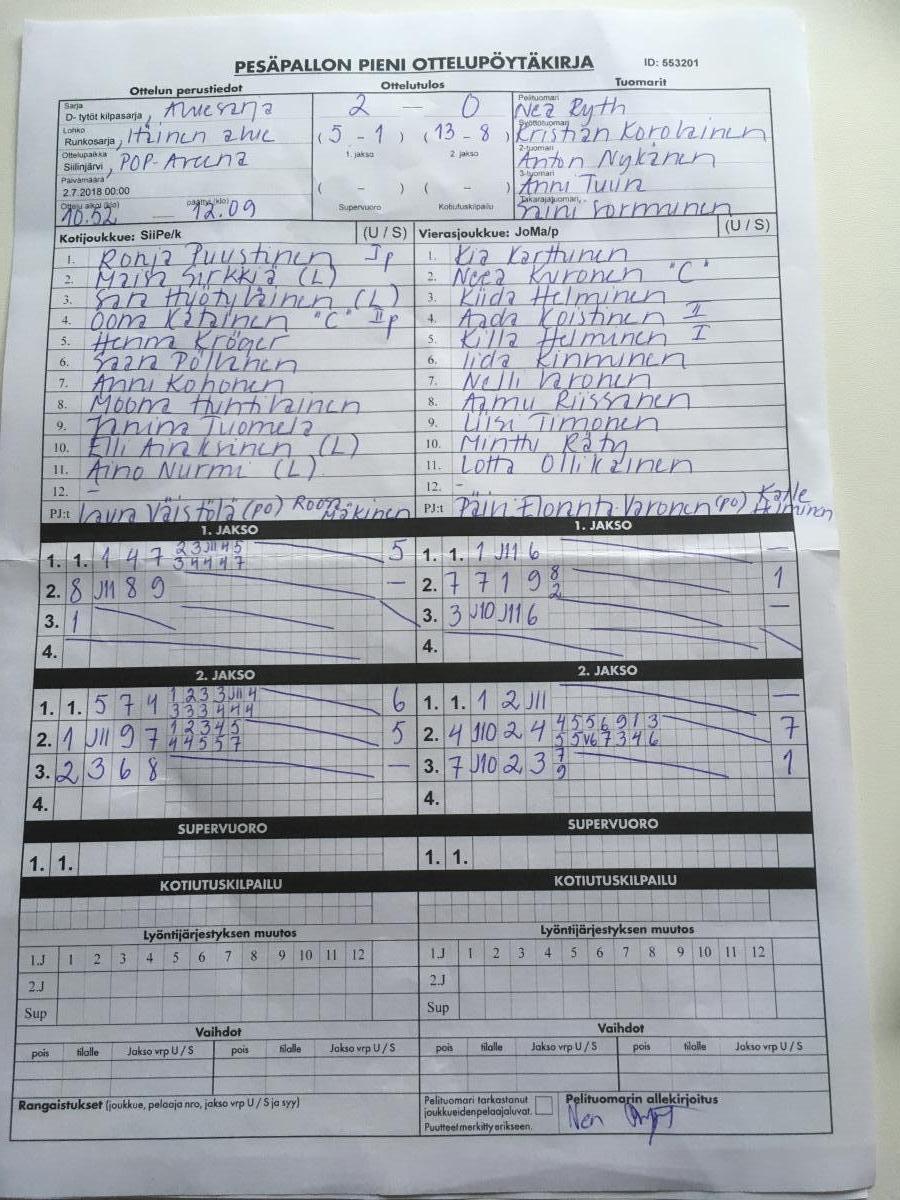 PESÄPALLON PIENI OTTELUPÖYTÄKIRJA ID: 553201
Ottelun perustiedot Ottelutulos Tuomarit
Sarja
D- tytöt kilpasarja, Aluesarja
2 — 0
Pelituomari
Nea Ryth
Lohko
Runkosarja, Itäinen alue
(5 - 1) (13 - 8)
1. jakso 2. jakso
Syöttötuomari
Kristian Korolainen
Ottelupaikka
Siilinjärvi, POP-Areena
2-tuomari
Anton Nykänen
Päivämäärä
2.7.2018 00:00
( - ) ( - )
3-tuomari
Anni Tuun
Ottelu alkoi (klo) päättyi (klo)
10.52 — 12.09
Supervuoro Kotiutuskilpailu
Takarajatuomari
Sormunen
Kotijoukkue: SiiPe/k (U / S)
1. Ronja Puustinen Ip
2. Maisa Sirkkiä (L)
3. Sara Hyötyläinen (L)
4. Oona Katainen "C" IIp
5. Henna Kröger
6. Saara Pöllänen
7. Anni Kohonen
8. Moona Huhtilainen
9. Janina Tuomela
10. Elli Airaksinen (L)
11. Aino Nurmi (L)
12. -
PJ:t Laura Väistölä (po) Roosa Mäkinen
Vierasjoukkue: JoMa/p (U / S)
1. Kia Karttunen
2. Neea Kuronen "C"
3. Kiida Helminen
4. Aada Koistinen II
5. Killa Helminen I
6. Iida Kinnunen
7. Nelli Varonen
8. Aamu Riissanen
9. Liisi Timonen
10. Minttu Räty
11. Lotta Ollikainen
12. -
PJ:t Päivi Eloranta-Varonen (po) Kalle Helminen
1. JAKSO
1. 1. 1 4 7 2 3 J11 4 5 5
3 4 4 4 7
2. 8 J11 8 9 —
3. 1
4.
1. JAKSO
1. 1. 1 J11 6 —
2. 7 7 1 9 8 1
2
3. 3 J10 J11 6 —
4.
2. JAKSO
1. 1. 5 7 4 1 2 3 3 J11 4 6
3 3 3 4 4 4
2. 1 J11 9 7 1 2 3 4 5 5
4 4 5 5 7
3. 2 3 6 8 —
4.
2. JAKSO
1. 1. 1 2 J11 —
2. 4 J10 2 4 4 5 5 6 9 1 3 7
5 5 V6 7 3 4 6
3. 7 J10 2 3 7 1
9
4.
SUPERVUORO
1. 1.
SUPERVUORO
1. 1.
KOTIUTUSKILPAILU
KOTIUTUSKILPAILU
Lyöntijärjestyksen muutos
1.J 1 2 3 4 5 6 7 8 9 10 11 12
2.J
Sup
Lyöntijärjestyksen muutos
1.J 1 2 3 4 5 6 7 8 9 10 11 12
2.J
Sup
Vaihdot
pois tilalle Jakso vrp U / S pois tilalle Jakso vrp U / S
Vaihdot
pois tilalle Jakso vrp U / S pois tilalle Jakso vrp U / S
Rangaistukset (joukkue, pelaaja nro, jakso vrp U / S ja syy)
Pelituomari tarkastanut
joukkueiden pelaajaluvat.
Puutteet merkitty erikseen.
Pelituomarin allekirjoitus